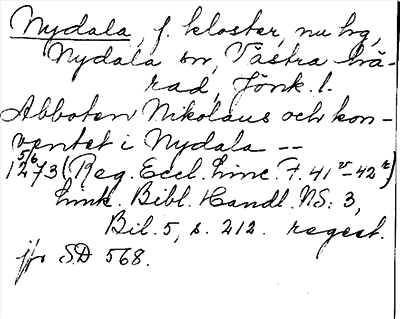 Nydala, f. kloster, nu hg,
Nydala sn, Västra hä-
rad, Jönk. l.
Abboten Nikolaus och kon-
ventet i Nydala --
5/6 1273 (Reg. Eccl. Linc. F. 41v-42r)
Link. Bibl. Handl. NS: 3,
Bil. 5, s. 212. regest.
jfr SD 568.